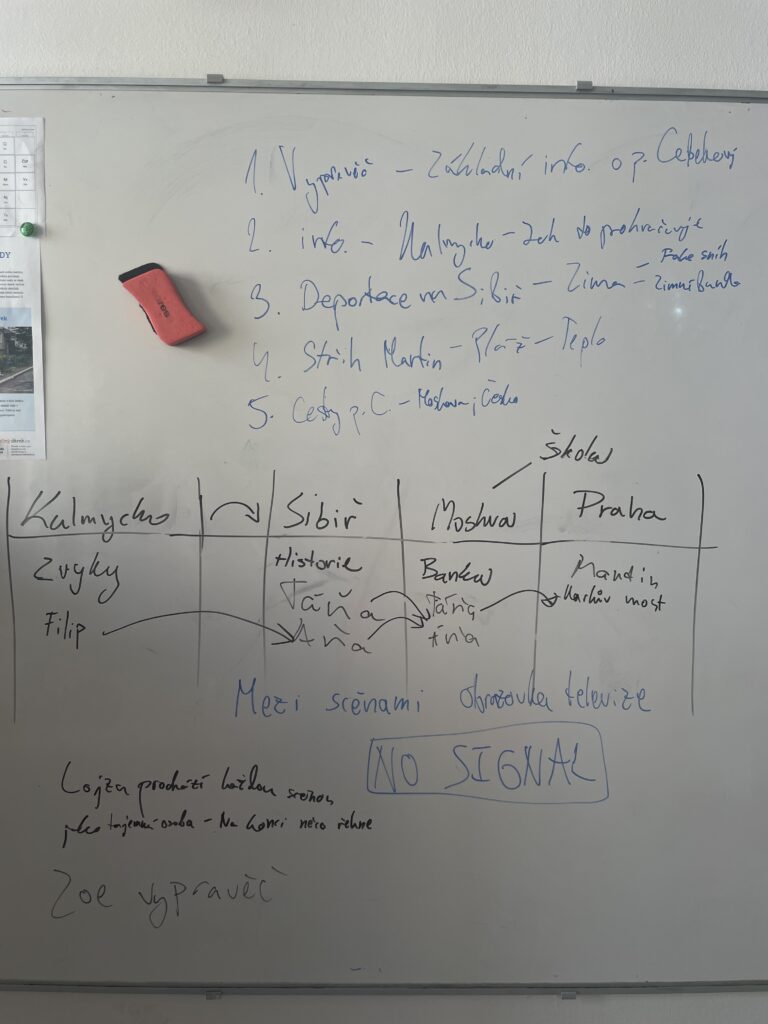 1. Vypravěč – Základní info. o p.
2. info. – Kalmycko – Jak to
3. Deportace na Sibiř – Zima – Fake sníh
Zimní Bunda
4. Střih Martin – Pláž – Teplo
5. Cesty p. C. – Moskva, Česko
škola
Kalmycko Sibiř Moskva Praha
Zvyky Historie Banka Martin
Táňa Táňa Karlův most
Filip Áňa Áňa
Mezi scénami obrazovka televize
NO SIGNAL
Lojza prochází každou scénou
jako tajemná osoba – Na konci něco řekne
Zoe vypravěč